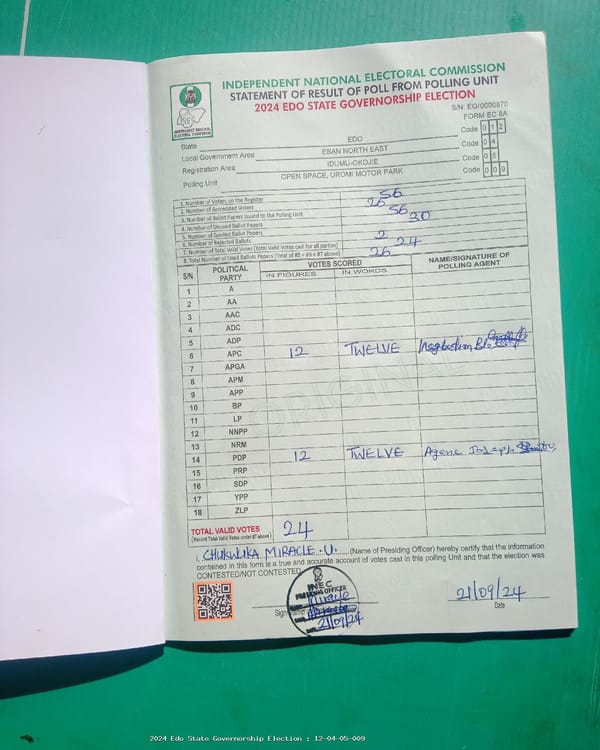 INDEPENDENT NATIONAL ELECTORAL COMMISSION
STATEMENT OF RESULT OF POLL FROM POLLING UNIT
2024 EDO STATE GOVERNORSHIP ELECTION
INEC
INDEPENDENT NATIONAL ELECTORAL COMMISSION
S/N: EG/0000870
FORM EC 8A
State EDO Code 0 1 2
Local Government Area ESAN NORTH EAST Code 0 4
Registration Area IDUMU-OKOJIE Code 0 5
Polling Unit OPEN SPACE, UROMI MOTOR PARK Code 0 0
1. Number of Voters on the Register 56
2. Number of Accredited Voters 26
3. Number of Ballot Papers Issued to the Polling Unit 56
4. Number of Unused Ballot Papers 30
5. Number of Spoiled Ballot Papers
6. Number of Rejected Ballots 2
7. Number of Total Valid Votes (Total Valid Votes cast for all parties) 24
8. Total Number of Used Ballots Papers (Total of #5 + #6 + #7 above) 26
S/N POLITICAL PARTY VOTES SCORED NAME/SIGNATURE OF POLLING AGENT
IN FIGURES IN WORDS
1 A
2 AA
3 AAC
4 ADC
5 ADP
6 APC 12 TWELVE
7 APGA
8 APM
9 APP
10 BP
11 LP
12 NNPP
13 NRM
14 PDP 12 TWELVE Joseph
15 PRP
16 SDP
17 YPP
18 ZLP
ORIGINAL
TOTAL VALID VOTES 24
(Record Total Valid Votes under #7 above)
I, CHUKWUKA MIRACLE .U. (Name of Presiding Officer) hereby certify that the information
contained in this form is a true and accurate account of votes cast in this polling Unit and that the election was
CONTESTED/NOT CONTESTED.
INEC
PRESIDING OFFICER
Miracle
21/09/24
21/09/24
Date
2024 Edo State Governorship Election : 12-04-05-009